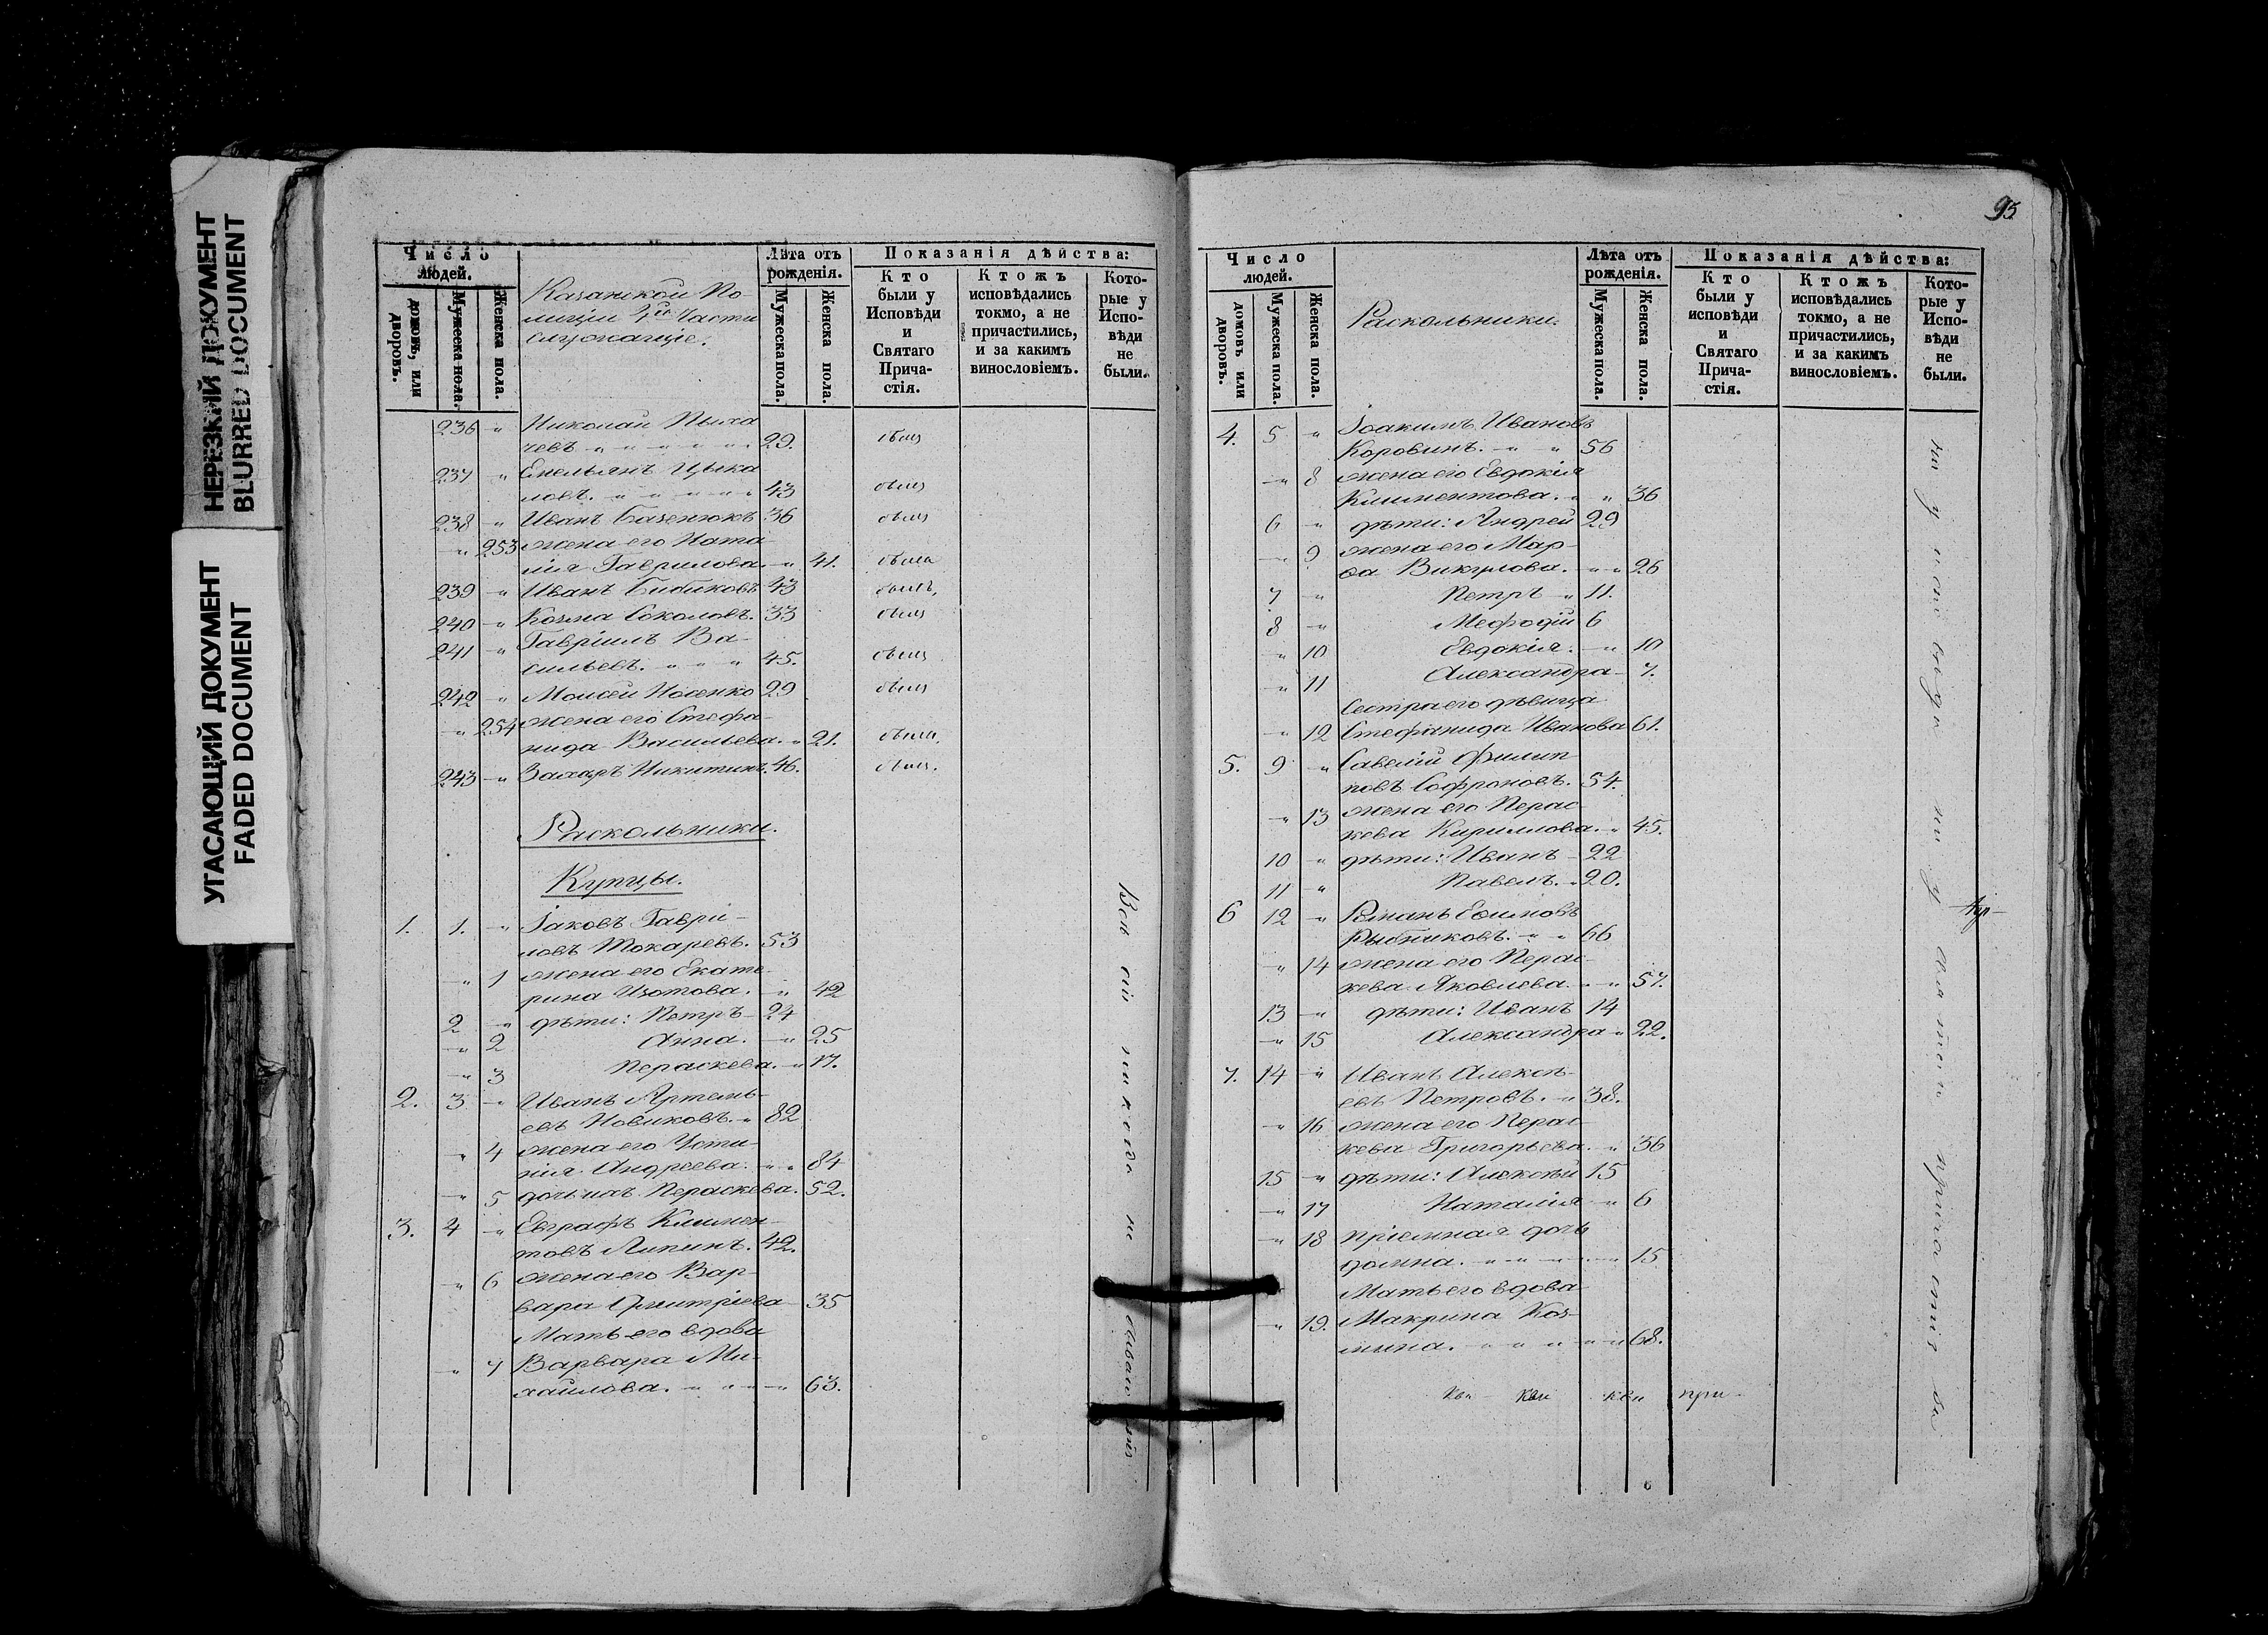 НЕРЕЗКИЙ ДОКУМЕНТ
BLURRED DOCUMENT
УГАСАЮЩИЙ ДОКУМЕНТ
FADED DOCUMENT
Число
людей.
домовъ, или
дворовъ.
Мужеска пола.
Женска пола.
Казанской По-
лиціи 4й Части
служащіе.
Лѣта отъ
рожденія.
Мужеска пола.
Женска пола.
Показанія дѣйства:
Кто
были у
Исповѣди
и
Святаго
Прича-
стія.
Ктожъ
исповѣдались
токмо, а не
причастились,
и за какимъ
винословіемъ.
Кото-
рые у
Испо-
вѣди
не
были.
236 " Николай Пыха
чевъ " " " " " 29. былъ
237 " Емельянъ Цыка
ловъ. " " " " " 43 былъ
238 " Иванъ Базенюкъ 36 былъ
" 253 жена его Ната-
лія Гаврилова. " 41. была
239 " Иванъ Бибиковъ 43 былъ,
240 " Козма Соколовъ. 33 былъ
241 " Гавріилъ Ва-
сильевъ. " " " 45. былъ
242 " Моисей Носенко 29 былъ
" 254 жена его Стефа-
нида Васильева. " 21. была,
243 " Захаръ Никитинъ. 46. былъ.
Раскольники.
Купцы.
1. 1. " Іаковъ Гаврі-
ловъ Токаревъ. 53
" 1 жена его Екате-
рина Изотова. " 42
2 " дѣти: Петръ 24
" 2 Анна. " 25
" 3 Параскева. " 17.
2. 3 " Иванъ Артемь-
евъ Новиковъ. " 82
" 4 жена его Усти-
нія Андреева. " " 84
" 5 дочь ихъ Параскева. 52.
3. 4 " Евграфъ Климен-
товъ Липинъ. 42.
" 6 жена его Вар-
вара Дмитріева 35
Мать его вдова
" 7 Варвара Ми-
хайлова. " " " " 63.
Всѣ сіи никогда не бывали
95
Число
людей.
домовъ или
дворовъ.
Мужеска пола.
Женска пола.
Раскольники.
Лѣта отъ
рожденія.
Мужеска пола.
Женска пола.
Показанія дѣйства:
Кто
были у
исповѣди
и
Святаго
Прича-
стія.
Ктожъ
исповѣдались
токмо, а не
причастились,
и за какимъ
винословіемъ.
Кото-
рые у
Испо-
вѣди
не
были.
4. 5 " Іоакимъ Ивановъ
Коровинъ. " " 56
" 8 жена его Евдокія
Климентова. " " 36
6 " дѣти: Андрей 29
" 9 жена его Мар-
ѳа Викулова. " " 26
7 " Петръ " 11.
8 " Мефодій 6
" 10 Евдокія. " 10
" 11 Александра 7.
Сестра его дѣвица
" 12 Стефанида Иванова 61.
5. 9 " Савелій Филип
повъ Софроновъ. 54.
" 13 жена его Парас-
кева Кириллова. " 45.
10 " дѣти: Иванъ 22
11 " Павелъ. 20.
6 12 " Романъ Ефимовъ
Рыбниковъ. " " 66
" 14 жена его Парас-
кева Яковлева. " " 57.
13 " дѣти: Иванъ 14
" 15 Александра " 22.
7. 14 " Иванъ Алексѣ-
евъ Петровъ. " 38.
" 16 жена его Парас-
кева Григорьева. " 36
15 " дѣти: Алексѣй 15
" 17 Наталія " 6
" 18 пріемная дочь
Домна. " " " " " 15
Мать его вдова
" 19. Макрина Коз-
мина. " " " " " 68.
ни у исповѣди ни у святаго причастія